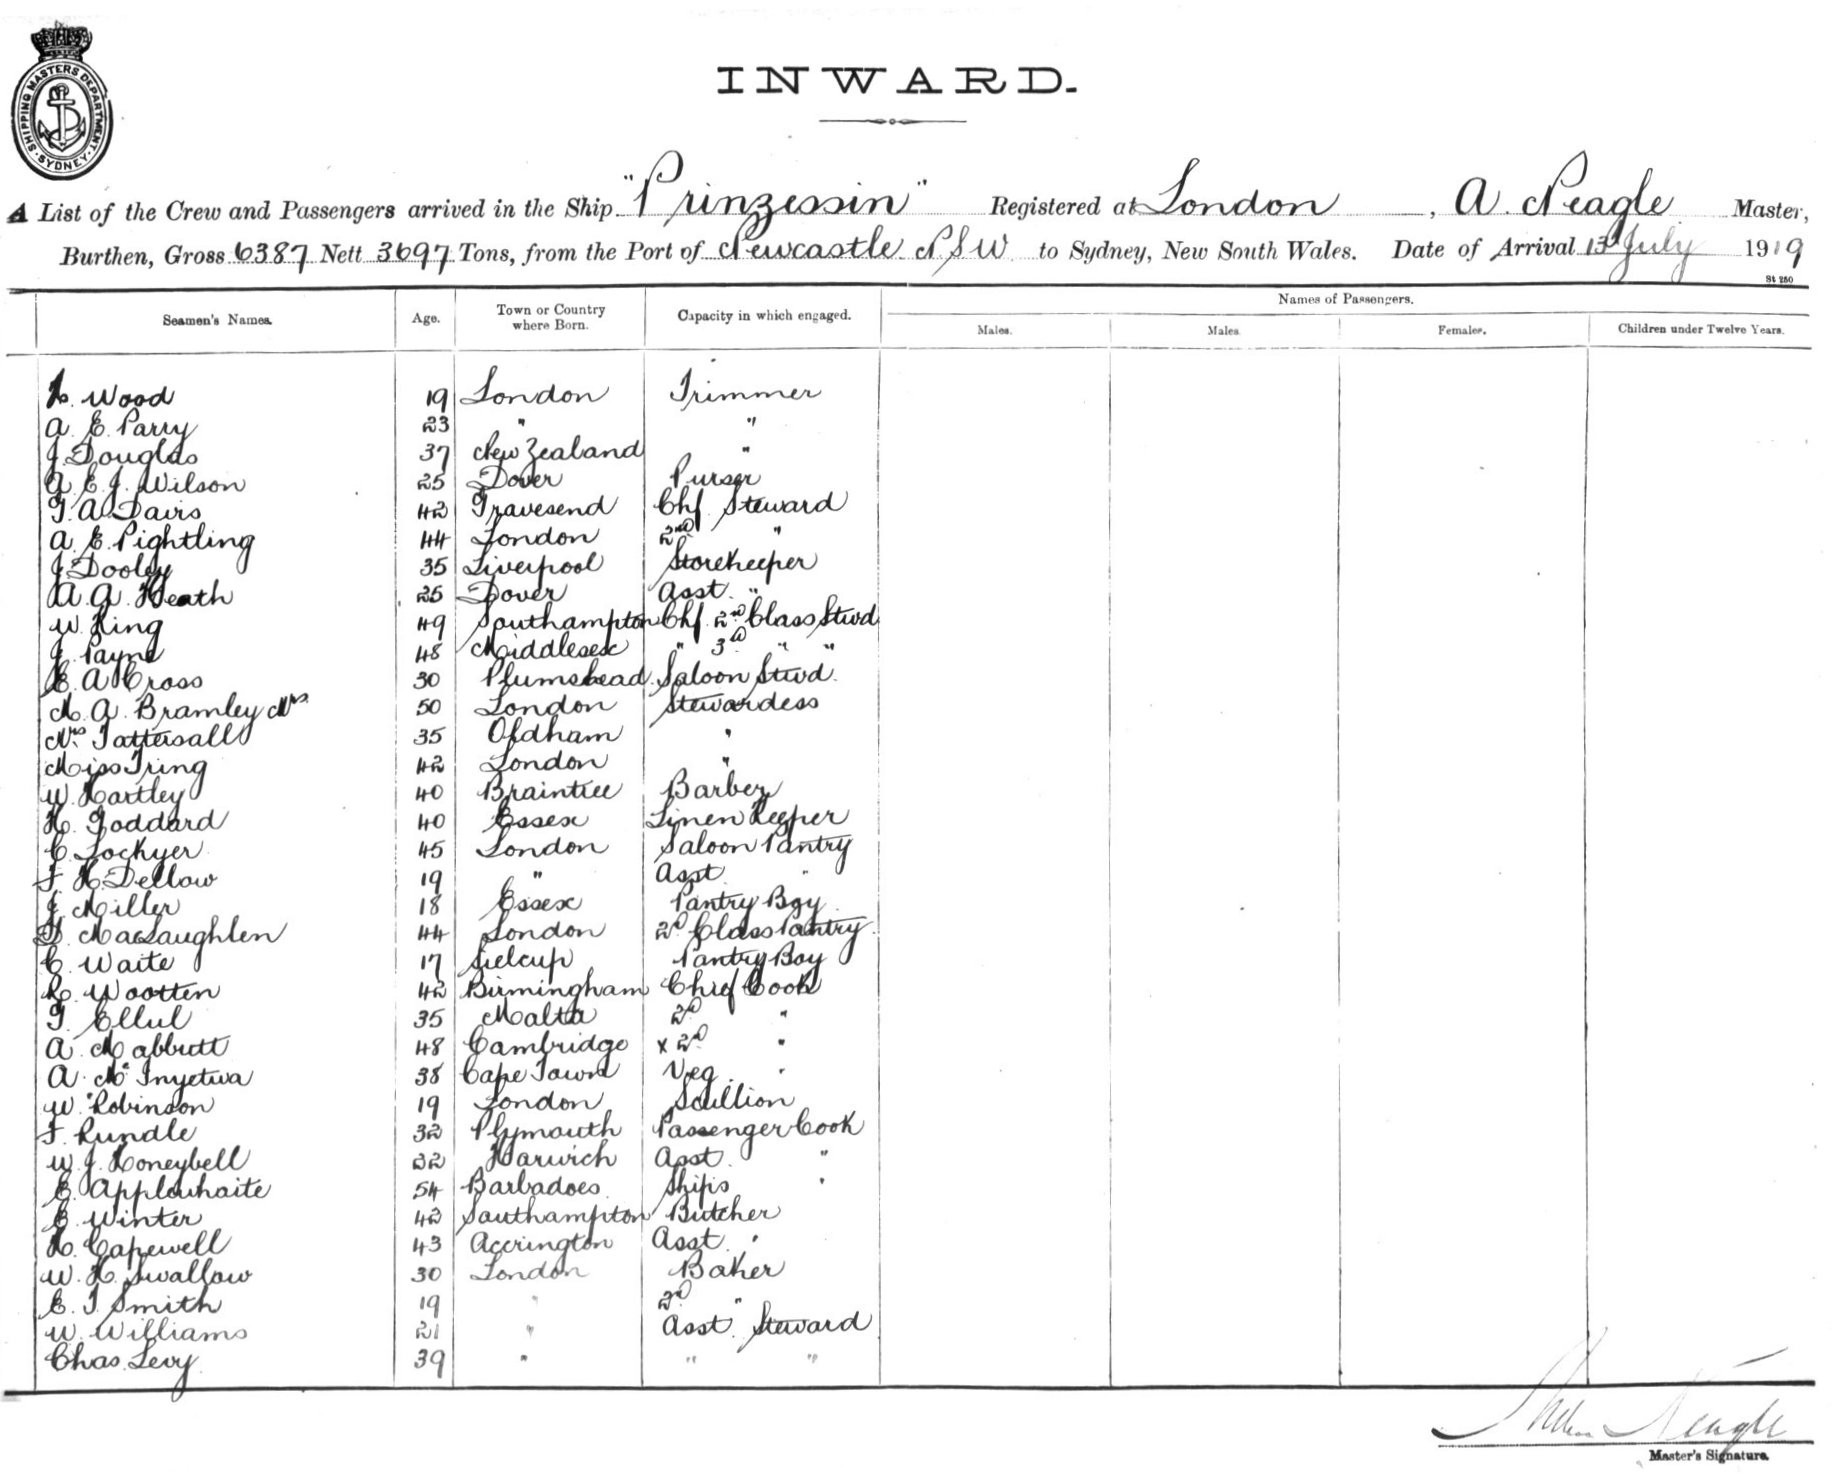 SHIPPING MASTERS DEPARTMENT · SYDNEY ·
INWARD.
A List of the Crew and Passengers arrived in the Ship "Prinzessin" Registered at London, A. Neagle Master,
Burthen, Gross 6387 Nett 3697 Tons, from the Port of Newcastle NSW to Sydney, New South Wales. Date of Arrival 13 July 1919
St 250
Seamen's Names. Age. Town or Country where Born. Capacity in which engaged. Names of Passengers.
Males. Males. Females. Children under Twelve Years.
H. Wood 19 London Trimmer
A. E. Parry 23 " "
J. Douglas 37 New Zealand "
A. E. J. Wilson 25 Dover Purser
T. A. Davis 42 Gravesend Chf. Steward
A. E. Pightling 44 London 2nd "
J. Dooley 35 Liverpool Storekeeper
A. A. Heath 25 Dover Asst. "
W. King 49 Southampton Chf. 2nd Class Stwd
J. Payne 48 Middlesex " 3d " "
E. A. Cross 30 Plumstead Saloon Stwd.
M. A. Bramley Mrs 50 London Stewardess
Mrs. Tattersall 35 Oldham "
Miss Tring 42 London "
W. Hartley 40 Braintree Barber
H. Goddard 40 Essex Linen Keeper
C. Lockyer 45 London Saloon Pantry
F. H. Dellow 19 " Asst. "
J. Miller 18 Essex Pantry Boy
MacLaughlen 44 London 2d Class Pantry
C. Waite 17 Sidcup Pantry Boy
Wootten 42 Birmingham Chief Cook
T. Ellul 35 Malta 2d "
A. Mabbutt 48 Cambridge x 2d "
A. Mc Inyetwa 38 Cape Town Veg. "
W. Robinson 19 London Scullion
F. Rundle 32 Plymouth Passenger Cook
W. J. Honeybell 22 Harwich Asst. "
E. Applewhaite 54 Barbadoes Ships "
E. Winter 42 Southampton Butcher
H. Capewell 43 Accrington Asst. "
W. H. Swallow 30 London Baker
E. T. Smith 19 " 2d "
W. Williams 21 " Asst. Steward
Chas. Levy 39 " " "
Neagle
Master's Signature.